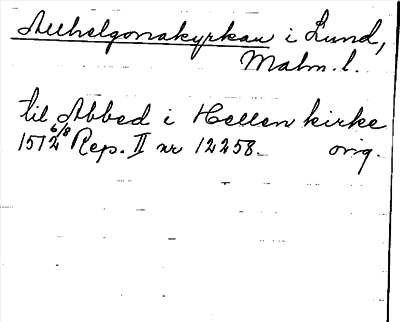 Allhelgonakyrkan i Lund,
Malm. l.
til Abbed i Hellen kirke
1512 6/8 Rep. II nr 12258. orig.